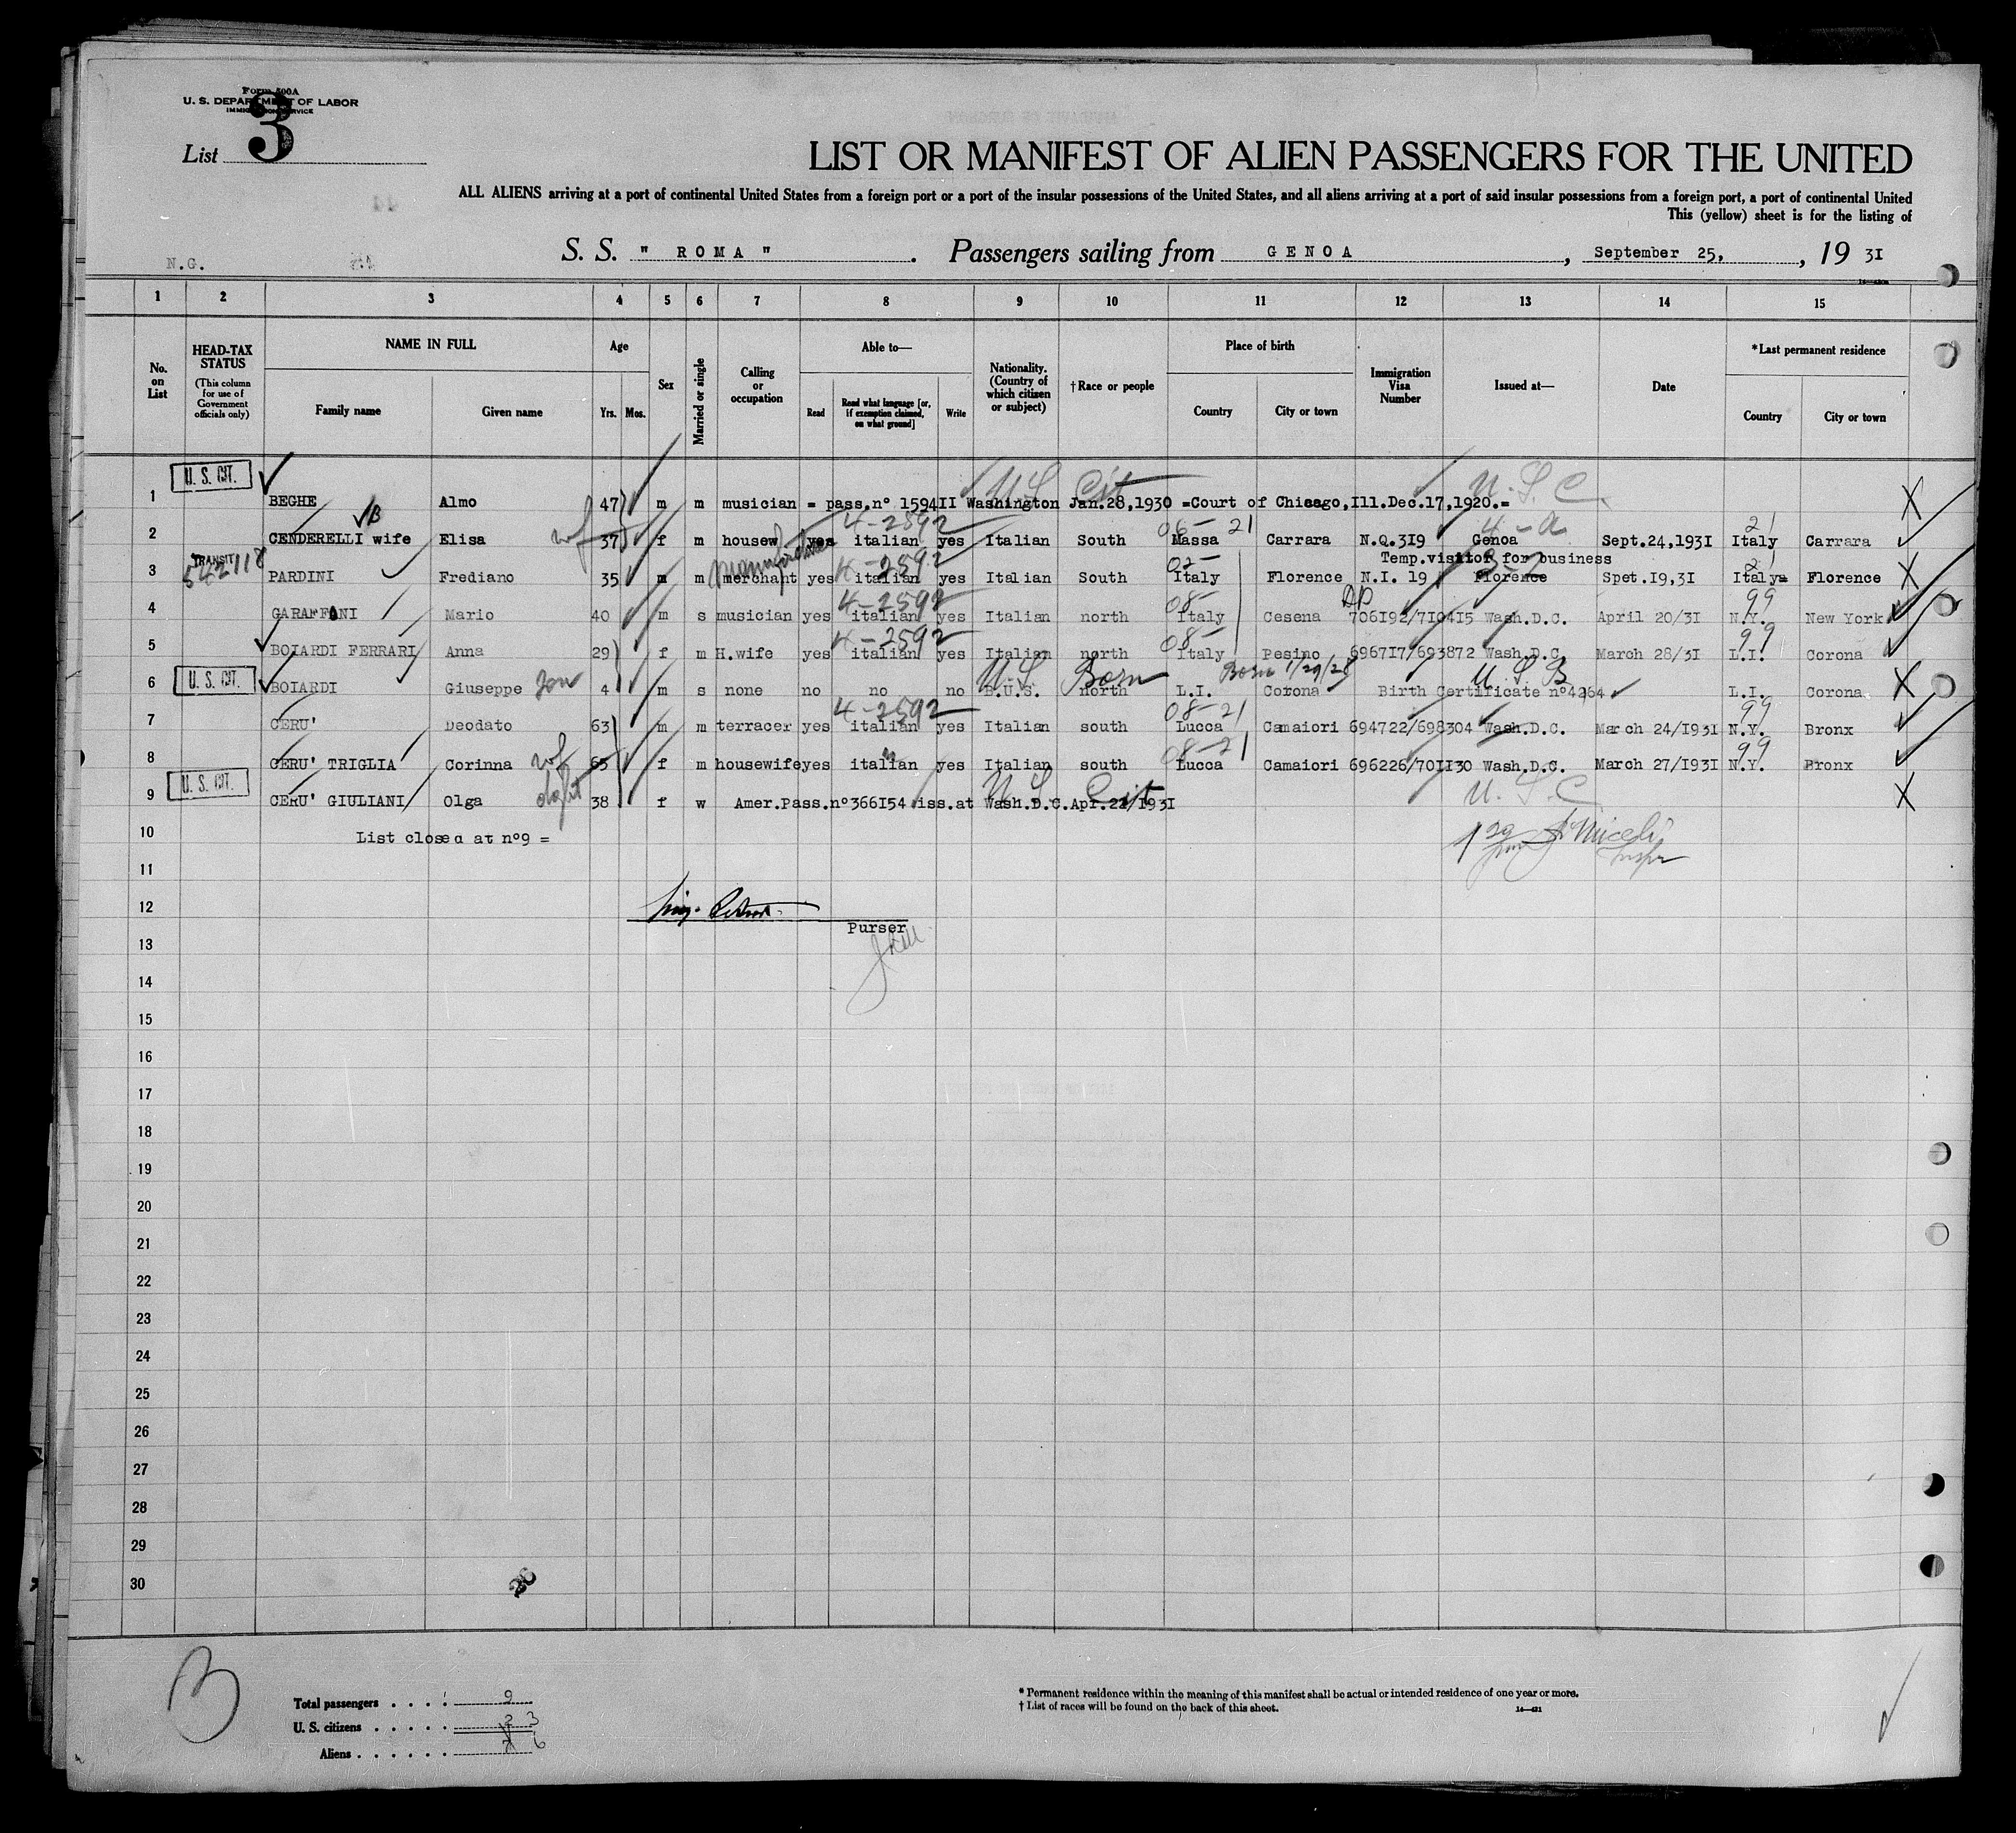 Form 500A
U. S. DEPARTMENT OF LABOR
IMMIGRATION SERVICE
3
List
LIST OR MANIFEST OF ALIEN PASSENGERS FOR THE UNITED
ALL ALIENS arriving at a port of continental United States from a foreign port or a port of the insular possessions of the United States, and all aliens arriving at a port of said insular possessions from a foreign port, a port of continental United
This (yellow) sheet is for the listing of
N.G.
S. S. " ROMA " . Passengers sailing from GENOA , September 25, , 19 31
1 2 3 4 5 6 7 8 9 10 11 12 13 14 15
No. on List
HEAD-TAX STATUS
(This column for use of Government officials only)
NAME IN FULL
Family name Given name
Age
Yrs. Mos.
Sex
Married or single
Calling or occupation
Able to—
Read
Read what language [or, if exemption claimed, on what ground]
Write
Nationality. (Country of which citizen or subject)
†Race or people
Place of birth
Country City or town
Immigration Visa Number
Issued at—
Date
*Last permanent residence
Country City or town
U. S. CIT. U S Cit U.S.C.
1 BEGHE Almo 47 m m musician = pass.n° 1594II Washington Jan.28,1930 =Court of Chicago,Ill.Dec.17,1920.= X
VB wf 4-2592 06- 21 4-a 21
2 CENDERELLI wife Elisa 37 f m housew yes italian yes Italian South Massa Carrara N.Q.3I9 Genoa Sept.24,1931 Italy Carrara
TRANSIT 542118 4-2592 02- Temp.visitor for business 3- 21
3 PARDINI Frediano 35 m m merchant yes italian yes Italian South Italy Florence N.I. 19 Florence Spet.I9,3I Italy= Florence X
4-2592 08- AP 99
4 GARAFFONI Mario 40 m s musician yes italian yes Italian north Italy Cesena 706I92/7I04I5 Wash.D.C. April 20/3I N.Y. New York
4-2592 08- 99
5 BOIARDI FERRARI Anna 29 f m H.wife yes italian yes Italian north Italy Pesino 6967I7/693872 Wash.D.C. March 28/3I L.I. Corona
U. S. CIT. son U.S. Born Born 1/29/28 U S B
6 BOIARDI Giuseppe 4 m s none no no no B.U.S. north L.I. Corona Birth Certificate n°4264 L.I. Corona X
4-2592 08-21 99
7 CERU' Deodato 63 m m terracer yes italian yes Italian south Lucca Camaiori 694722/698304 Wash.D.C. March 24/I93I N.Y. Bronx
wf 08-21 99
8 CERU' TRIGLIA Corinna 65 f m housewife yes italian yes Italian south Lucca Camaiori 696226/70II30 Wash.D.C. March 27/I93I N.Y. Bronx
U. S. CIT. U S Cit U.S.C
9 CERU' GIULIANI Olga 38 f w Amer.Pass.n°366I54 iss.at Wash.D.C.Apr.22/I93I X
10 List closed at n°9 =
11
12
Purser
13
14
15
16
17
18
19
20
21
22
23
24
25
26
27
28
29
30
B
Total passengers . . . . 9
U. S. citizens . . . . . 2 3
Aliens . . . . . . 7 6
* Permanent residence within the meaning of this manifest shall be actual or intended residence of one year or more.
† List of races will be found on the back of this sheet.